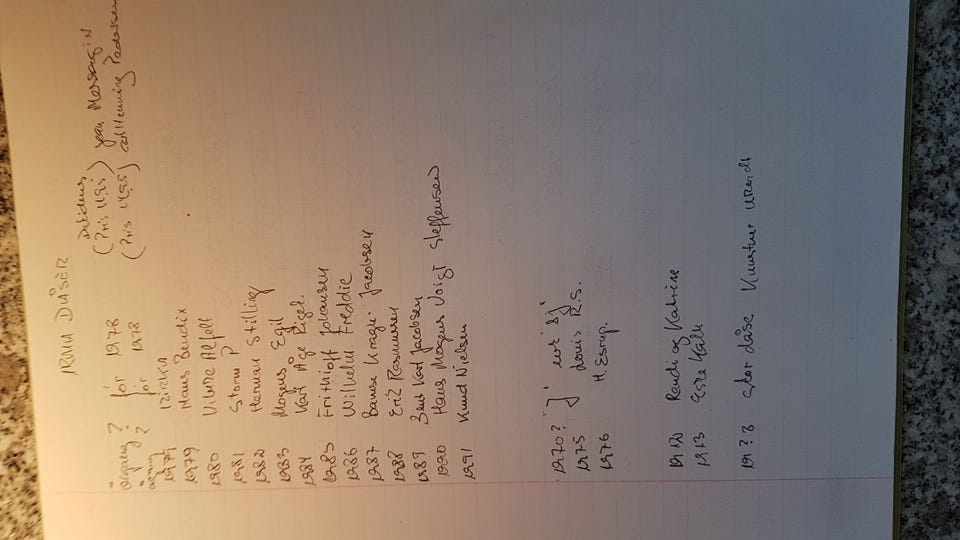 IRMA DÅSER
årgang? før 1978 (Pris 14,95) Jean Messagier
årgang? før 1978 (Pris 14,95) Carl Henning Pedersen
1979
1979 Hans Bendix
1980 Vibeke Alfelt
1981 Storm P
1982 Herman Stilling
1983 Mogens Egil
1984 Karl Åge Riget.
1985 Frithioff Johansen
1986 Wilhelm Freddie
1987 Bamse Kragh-Jacobsen
1988 Eril Rasmussen
1989 Bent Karl Jacobsen
1990 Hans Mogens Voigt Steffensen
1991 Knud Nielsen
1970?
1975 Louis R.S.
1976 H. Estrup.
1912 Randi og Katrine
1913 Eske Kath
19?? Stor dåse Kunstner ukendt